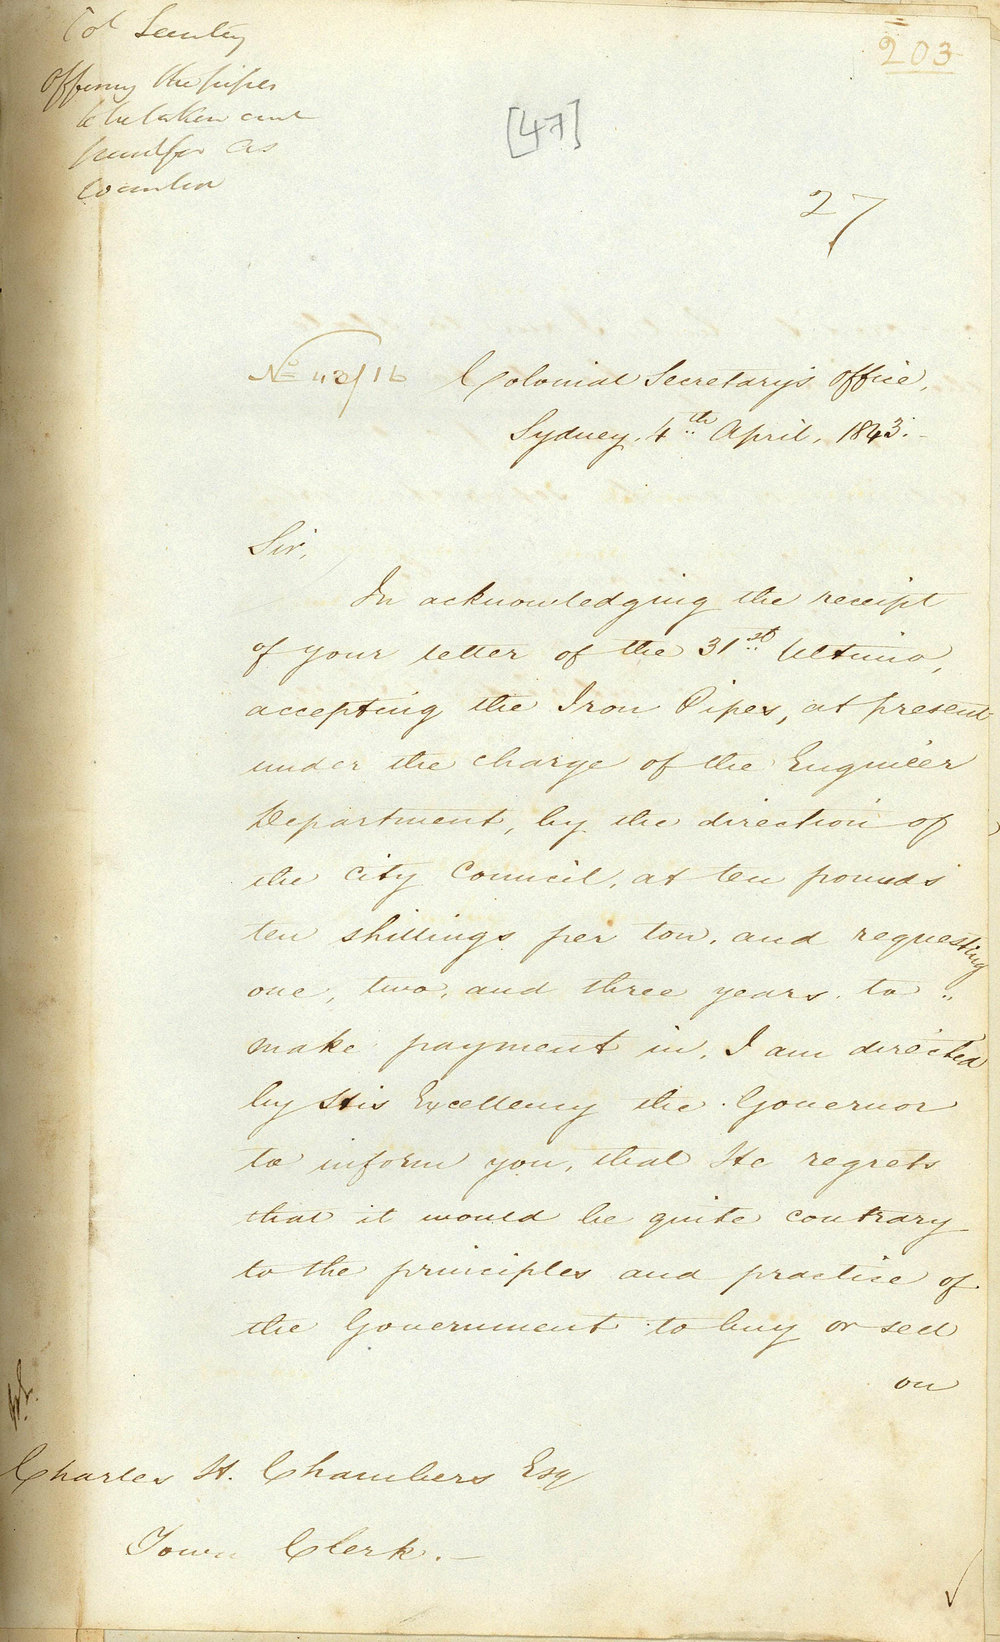 Col Secretary
203
offering the pipes
to be taken and
paid for as
[47]
27
No 43/16 Colonial Secretary's Office,
Sydney, 4th April, 1843.
Sir,
In acknowledging the receipt
of your letter of the 31st Ultimo,
accepting the Iron Pipes, at present
under the charge of the Engineer
Department, by the direction of
the City Council, at ten pounds
ten shillings per ton, and requesting
one, two, and three years to
make payment in, I am directed
by His Excellency the Governor
to inform you, that He regrets
that it would be quite contrary
to the principles and practice of
the Government to buy or sell
on
Charles H. Chambers Esq
Town Clerk.